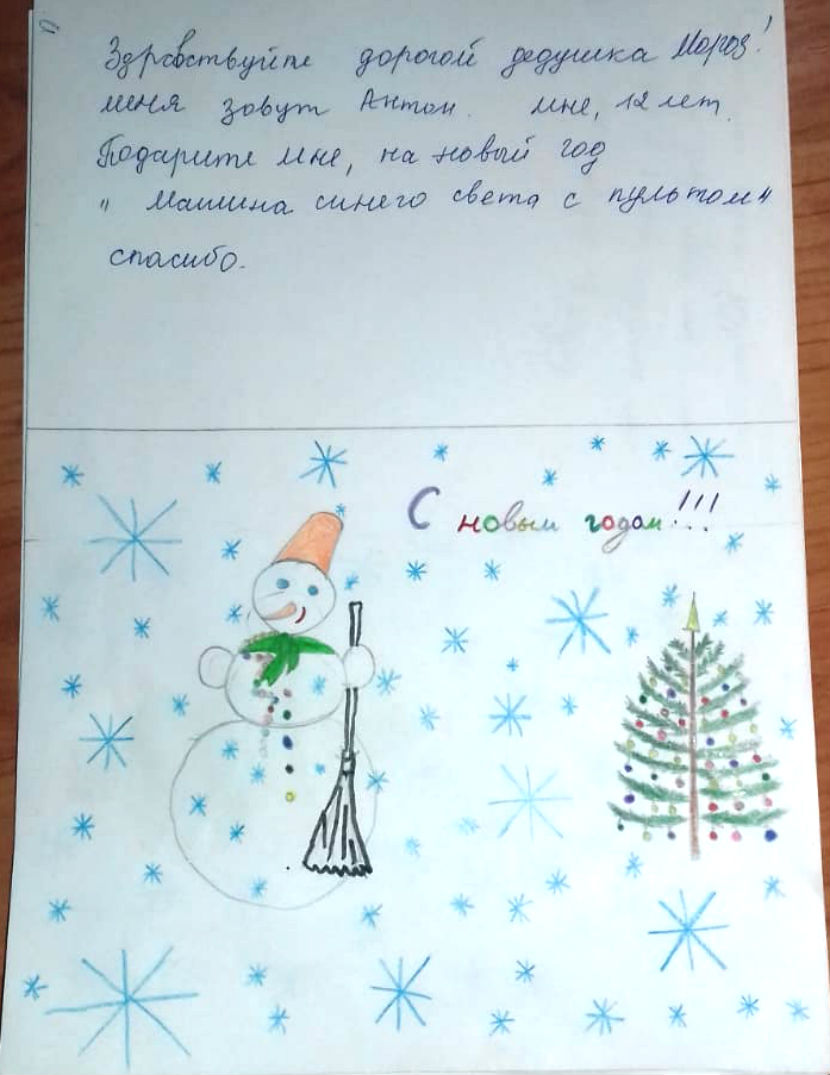 Здравствуйте дорогой дедушка Мороз!
меня зовут Антон. мне, 12 лет.
Подарите мне, на новый год
" Машина синего света с пультом "
спасибо.
С новым годом!!!